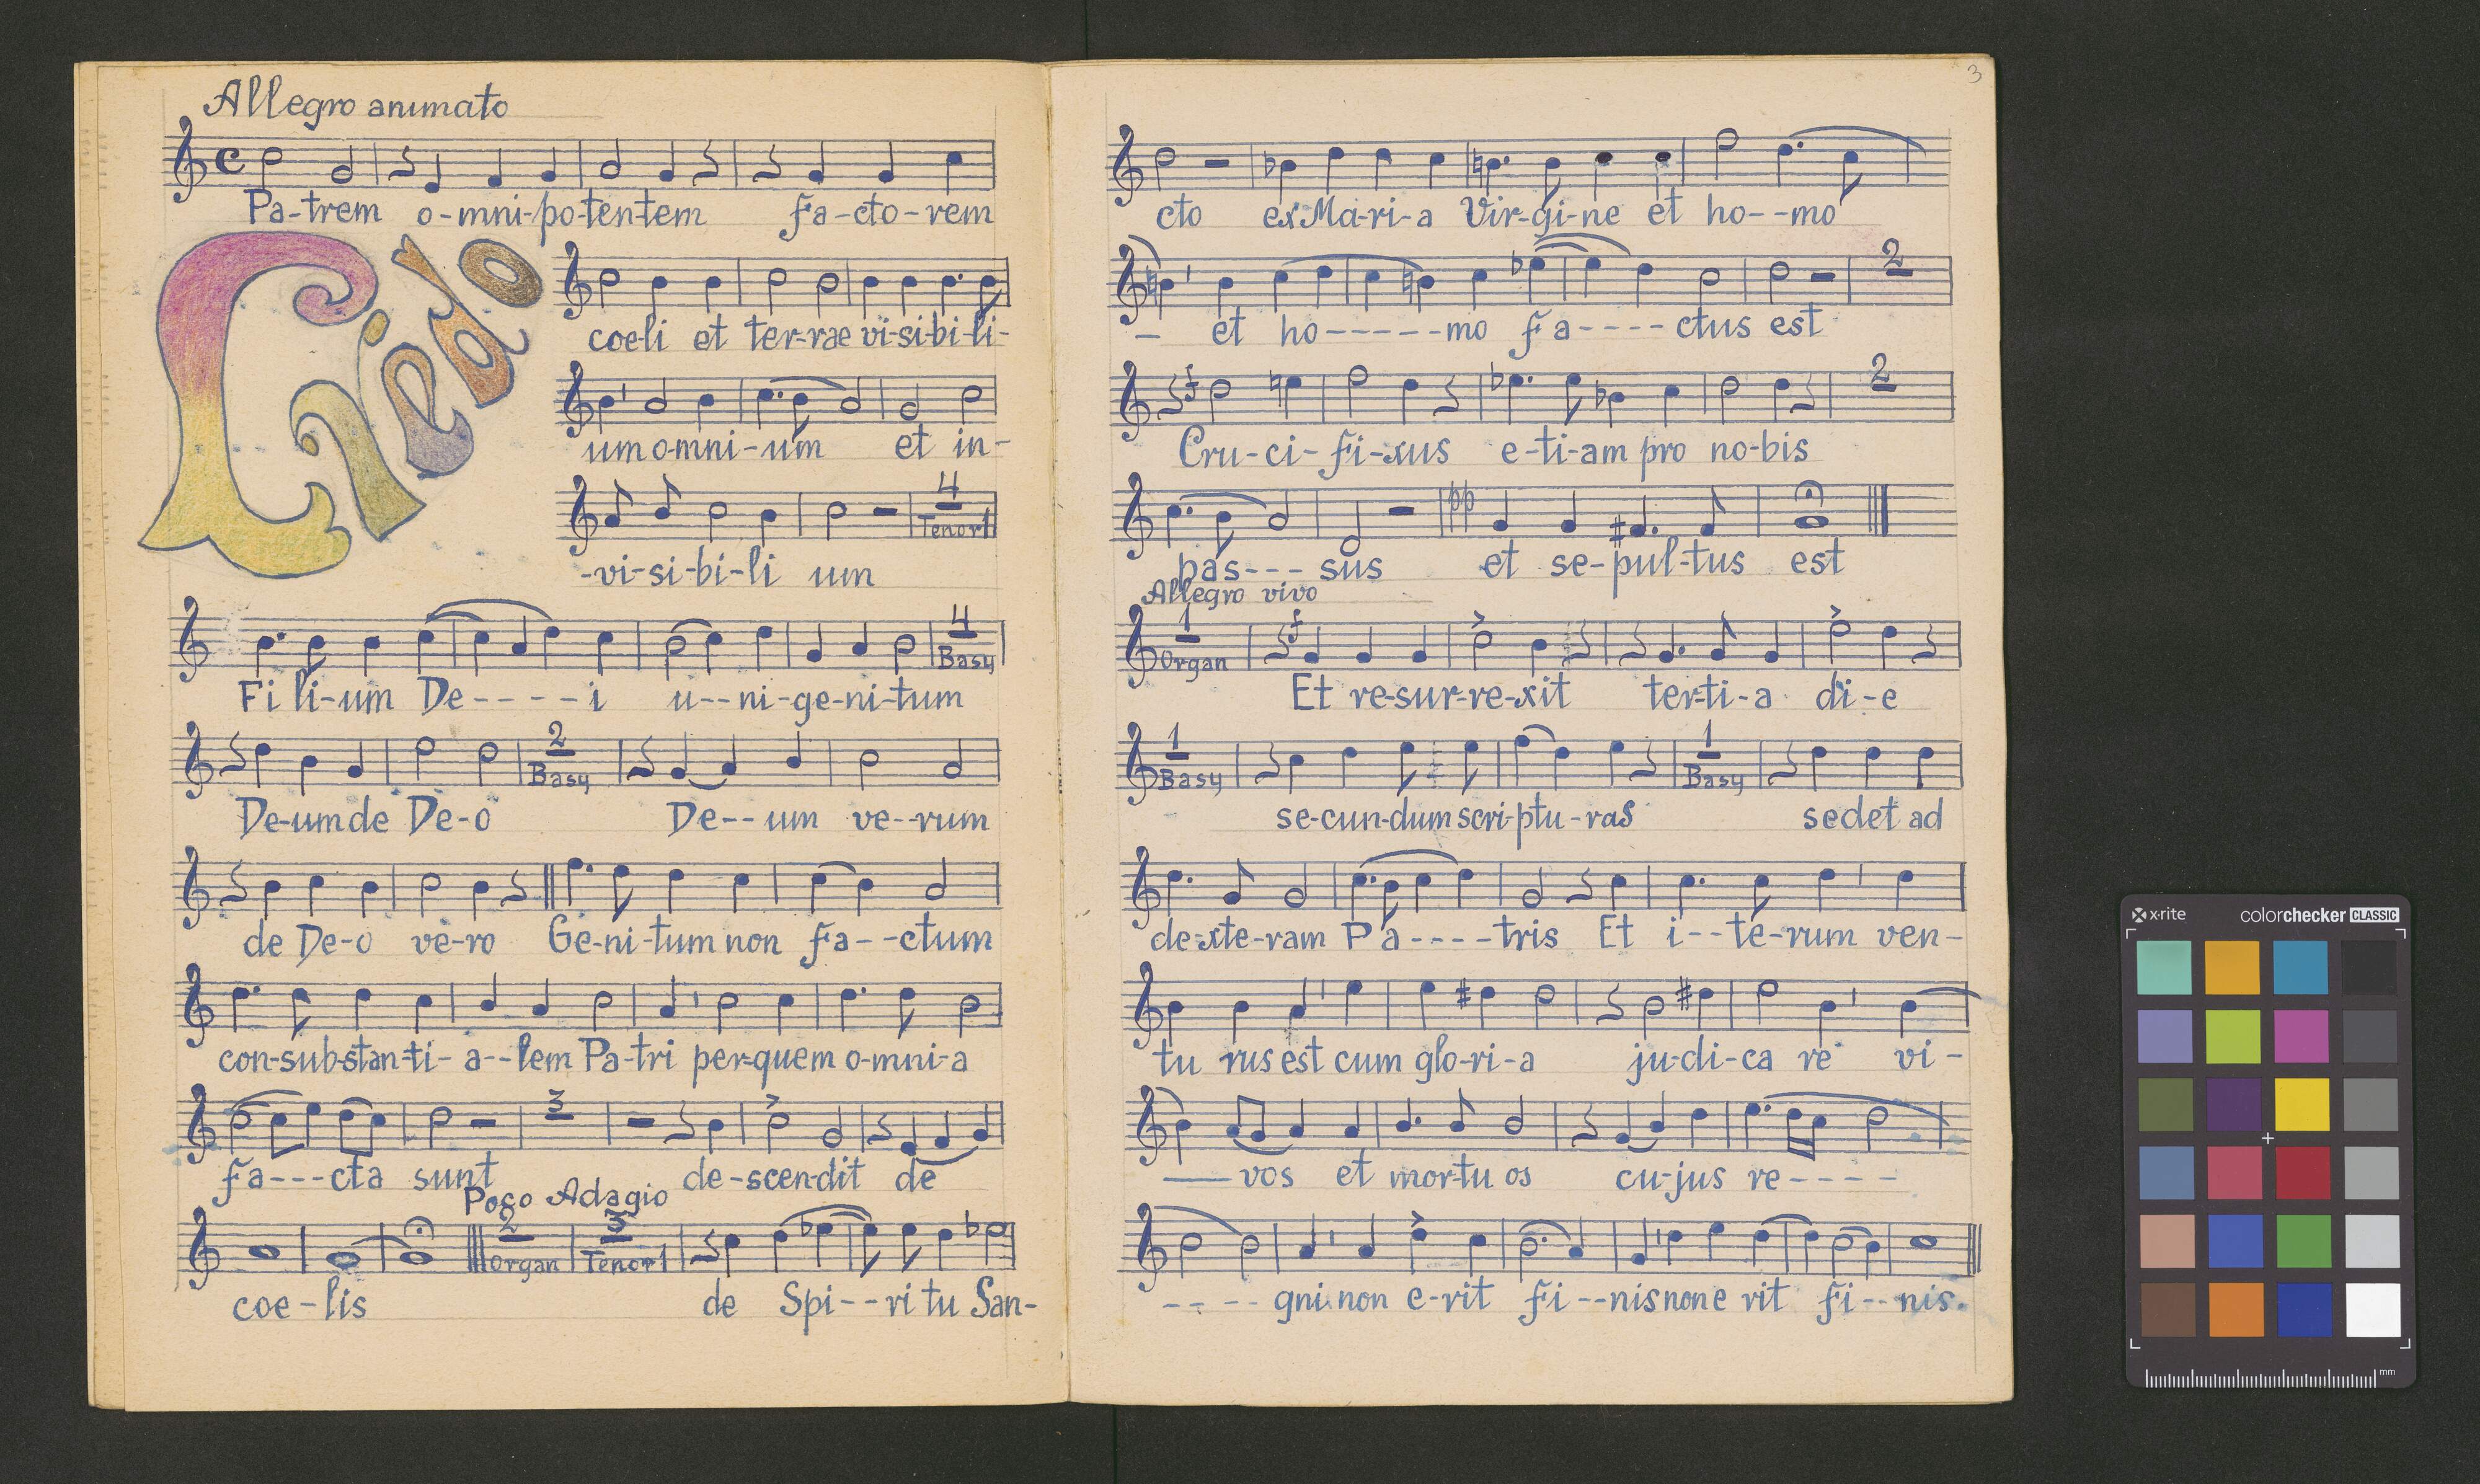 Allegro animato
Pa-trem o-mni-po-ten-tem fa-cto-rem
Credo
coe-li et ter-rae vi-si-bi-li-
um o-mni-um et in-
4
Tenor 1
-vi-si-bi-li um
4
Basy
Fi li-um De----i u--ni-ge-ni-tum
2
Basy
De-um de De-o De--um ve--rum
de De-o ve-ro Ge-ni-tum non fa--ctum
con-sub-stan-ti-a--lem Pa-tri per-quem o-mni-a
3
fa---cta sunt de-scen-dit de
Poco Adagio
2 3
Organ Tenor 1
coe-lis de Spi--ri tu San-
3
cto ex Ma-ri-a Vir-gi-ne et ho--mo
2
— et ho-----mo fa----ctus est
f 2
Cru-ci-fi-xus e-ti-am pro no-bis
pp
pas---sus et se-pul-tus est
Allegro vivo
1 f
Organ
Et re-sur-re-xit ter-ti-a di-e
1 1
Basy Basy
se-cun-dum scri-ptu-ras sedet ad
de-xte-ram Pa----tris Et i--te-rum ven-
tu rus est cum glo-ri-a ju-di-ca re vi-
— vos et mor-tu os cu-jus re----
---- gni non e-rit fi--nis non e rit fi--nis.
x·rite colorchecker CLASSIC
mm